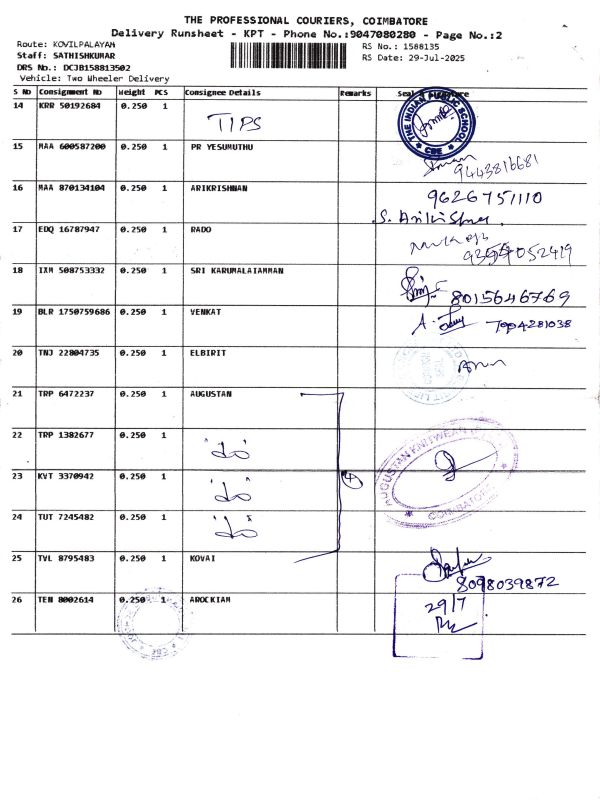 THE PROFESSIONAL COURIERS, COIMBATORE
Delivery Runsheet - KPT - Phone No.:9047080280 - Page No.:2
Route: KOVILPALAYAM
RS No.: 1588135
Staff: SATHISHKUMAR
RS Date: 29-Jul-2025
DRS No.: DCJB158813502
Vehicle: Two Wheeler Delivery
S NO Consignment NO Weight PCS Consignee Details Remarks
14 KRR 50192684 0.250 1 TIPS
THE INDIAN PUBLIC SCHOOL
CBE
15 MAA 600587200 0.250 1 PR YESUMUTHU
9443816681
16 MAA 870134104 0.250 1 ARIKRISHNAN
9626751110
17 EDQ 16787947 0.250 1 RADO
18 IXM 508753332 0.250 1 SRI KARUMALAIAMMAN
8015646769
19 BLR 1750759686 0.250 1 VENKAT
7904281038
20 TNJ 22804735 0.250 1 ELBIRIT
21 TRP 6472237 0.250 1 AUGUSTAN
22 TRP 1382677 0.250 1 "do"
23 KVT 3370942 0.250 1 "do" 4
AUGUSTAN KNITWEAR
COIMBATORE
24 TUT 7245482 0.250 1 "do"
25 TVL 8795483 0.250 1 KOVAI
8098039872
26 TEN 8002614 0.250 1 AROCKIAM
29/7